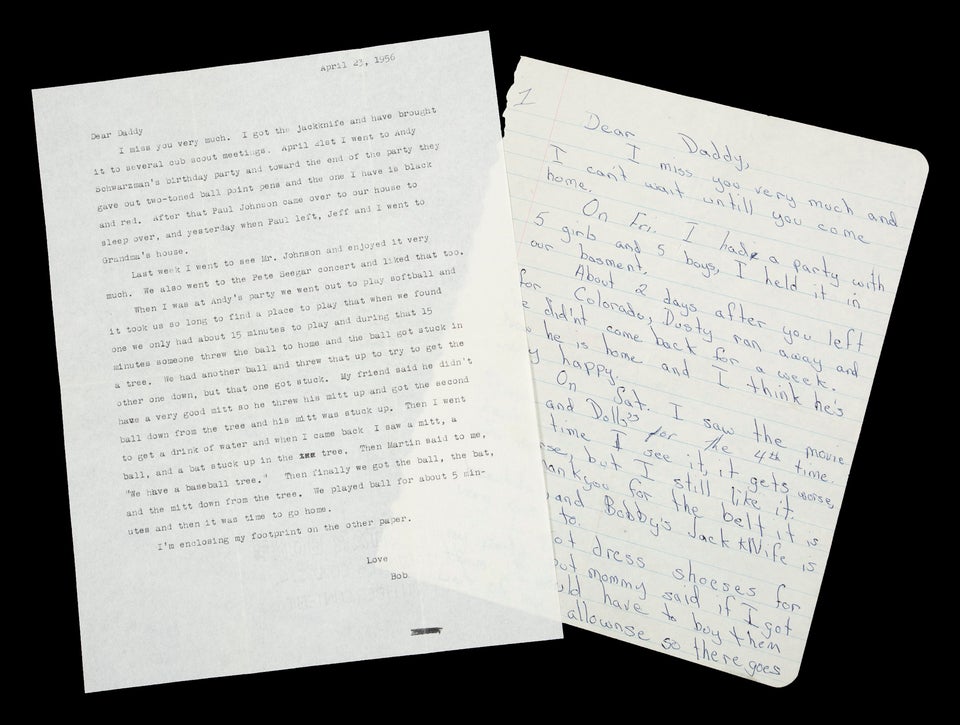 April 23, 1956
Dear Daddy
I miss you very much. I got the jackknife and have brought
it to several cub scout meetings. April 21st I went to Andy
Schwarzman's birthday party and toward the end of the party they
gave out two-toned ball point pens and the one I have is black
and red. After that Paul Johnson came over to our house to
sleep over, and yesterday when Paul left, Jeff and I went to
Grandma's house.
Last week I went to see Mr. Johnson and enjoyed it very
much. We also went to the Pete Seegar concert and liked that too.
When I was at Andy's party we went out to play softball and
it took us so long to find a place to play that when we found
one we only had about 15 minutes to play and during that 15
minutes someone threw the ball to home and the ball got stuck in
a tree. We had another ball and threw that up to try to get the
other one down, but that one got stuck. My friend said he didn't
have a very good mitt so he threw his mitt up and got the second
ball down from the tree and his mitt was stuck up. Then I went
to get a drink of water and when I came back I saw a mitt, a
ball, and a bat stuck up in the tree. Then Martin said to me,
"We have a baseball tree." Then finally we got the ball, the bat,
and the mitt down from the tree. We played ball for about 5 min-
utes and then it was time to go home.
I'm enclosing my footprint on the other paper.
Love
Bob
1
Dear Daddy,
I miss you very much and
I can't wait untill you come
home.
On Fri. I had a party with
5 girls and 5 boys, I held it in
our basment.
About 2 days after you left
for Colorado, Dusty ran away and
didn't come back for a week.
he is home and I think he's
happy.
On Sat. I saw the movie
and Dolls" for the 4th time.
time I see it, it gets worse,
but I still like it.
for the belt it is
and Bobby's JackKNife is
to.
dress shoeses for
but mommy said if I got
have to buy them
allownse so there goes